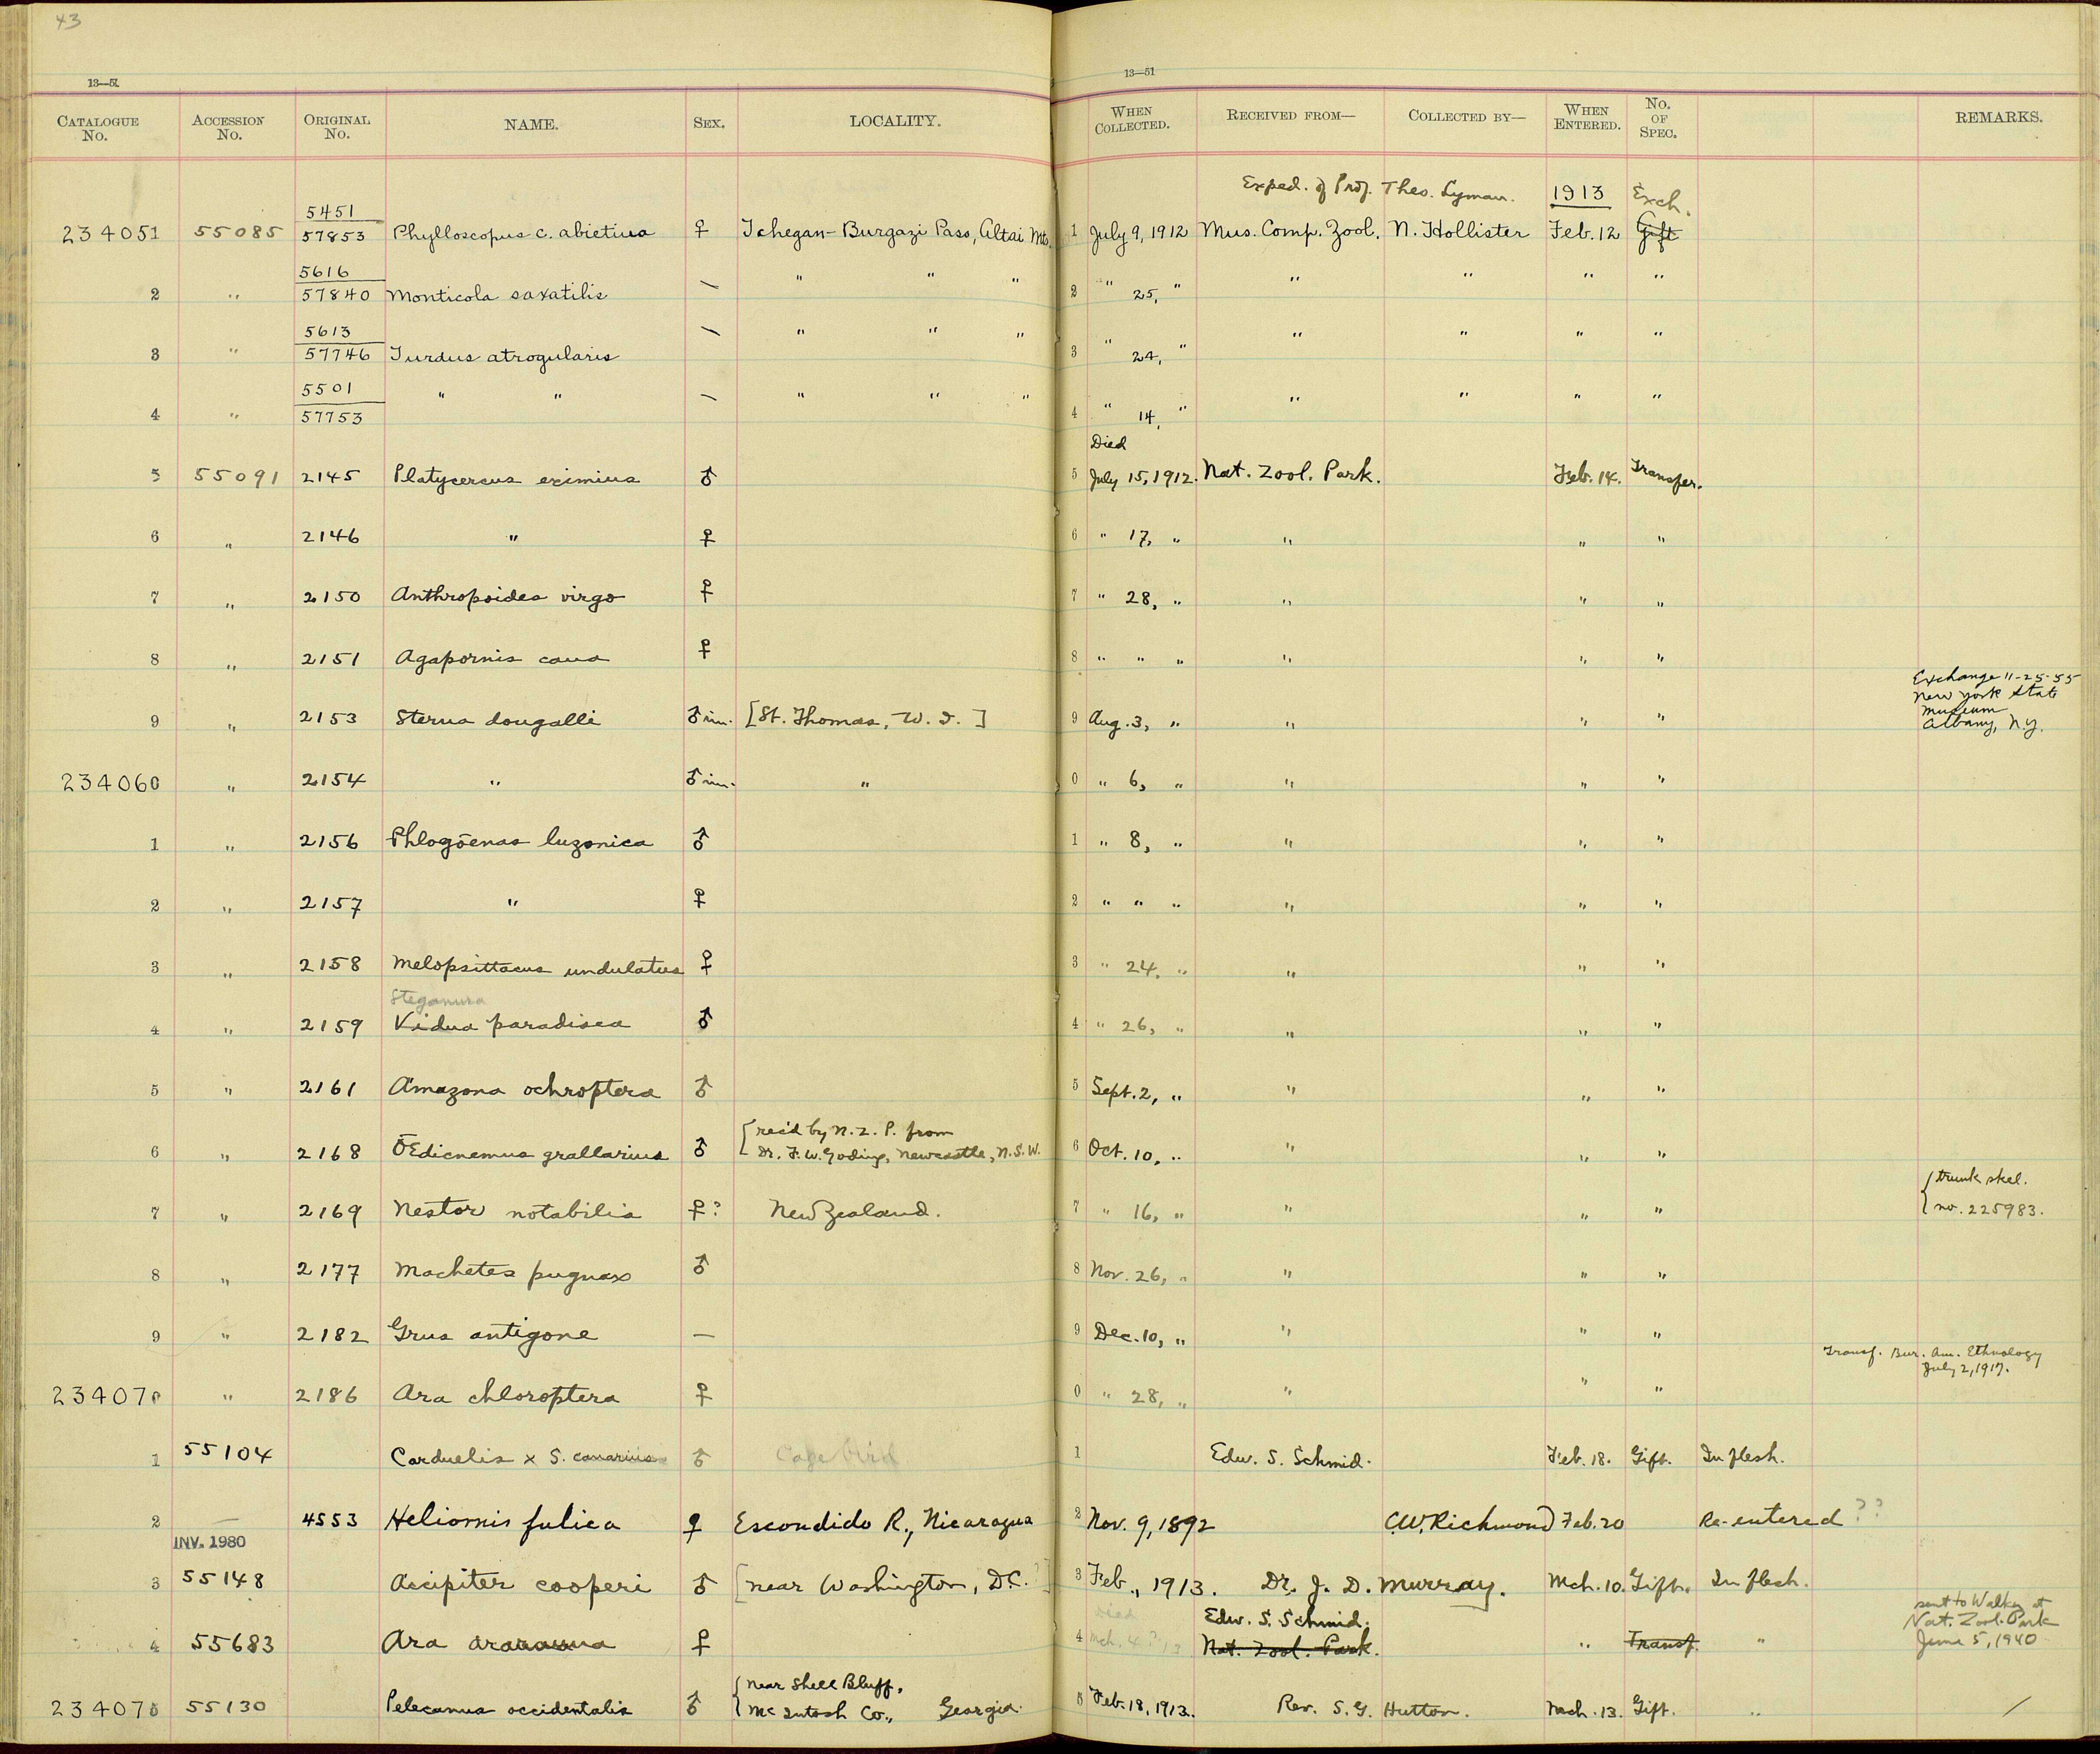 43
13—51
13—51
CATALOGUE No. ACCESSION No. ORIGINAL No. NAME. SEX. LOCALITY. WHEN COLLECTED. RECEIVED FROM— COLLECTED BY— WHEN ENTERED. No. OF SPEC. REMARKS.
Exped. of Prof. Theo. Lyman. 1913 Exch.
5451
234051 55085 57853 Phylloscopus c. abietina ♀ Tchegan-Burgazi Pass, Altai Mts. 1 July 9, 1912 Mus. Comp. Zool. N. Hollister Feb. 12 Gift
5616
2 " 57840 Monticola saxatilis — " " " 2 " 25, " " " " "
5613
3 " 57746 Turdus atrogularis — " " " 3 " 24, " " " " "
5501
4 " 57753 " " — " " " 4 " 14, " " " " "
Died
5 55091 2145 Platycercus eximius ♂ 5 July 15, 1912. Nat. Zool. Park. Feb. 14. Transfer.
6 " 2146 " ♀ 6 " 17, " " " "
7 " 2150 Anthropoides virgo ♀ 7 " 28, " " " "
8 " 2151 Agapornis cana ♀ 8 " " " " " "
Exchange 11-25-55
New York State
Museum
Albany, N.Y.
9 " 2153 Sterna dougalli ♂ im. [St. Thomas, W. I.] 9 Aug. 3, " " " "
234060 " 2154 " ♂ im. " 0 " 6, " " " "
1 " 2156 Phlogoenas luzonica ♂ 1 " 8, " " " "
2 " 2157 " ♀ 2 " " " " " "
3 " 2158 Melopsittacus undulatus ♀ 3 " 24, " " " "
Steganura
4 " 2159 Vidua paradisea ♂ 4 " 26, " " " "
5 " 2161 Amazona ochroptera ♂ 5 Sept. 2, " " " "
{rec'd by N. Z. P. from
6 " 2168 Œdicnemus grallarius ♂ Dr. F. W. Goding, Newcastle, N.S.W. 6 Oct. 10, " " " "
{trunk skel.
7 " 2169 Nestor notabilis ♀? New Zealand. 7 " 16, " " " " no. 225983.
8 " 2177 Machetes pugnax ♂ 8 Nov. 26, " " " "
9 " 2182 Grus antigone — 9 Dec. 10, " " " "
Transf. Bur. Am. Ethnology
July 2, 1917.
234070 " 2186 Ara chloroptera ♀ 0 " 28, " " " "
1 55104 Carduelis x S. canarius ♂ Cage bird 1 Edw. S. Schmid. Feb. 18. Gift. In flesh.
2 — 4553 Heliornis fulica ♀ Escondido R., Nicaragua 2 Nov. 9, 1892 C.W. Richmond Feb. 20 Re-entered ??
INV. 1980
3 55148 Accipiter cooperi ♂ [near Washington, D.C.?] 3 Feb., 1913. Dr. J. D. Murray. Mch. 10. Gift. In flesh.
Died Edw. S. Schmid. sent to Walker at
Nat. Zool. Park
4 55683 Ara ararauna ♀ 4 Mch. 4?, 13 Nat. Zool. Park. " Transf. " June 5, 1940
{near Shell Bluff,
234075 55130 Pelecanus occidentalis ♂ McIntosh Co., Georgia. 5 Feb. 18, 1913. Rev. S. G. Hutton. Mch. 13. Gift. "